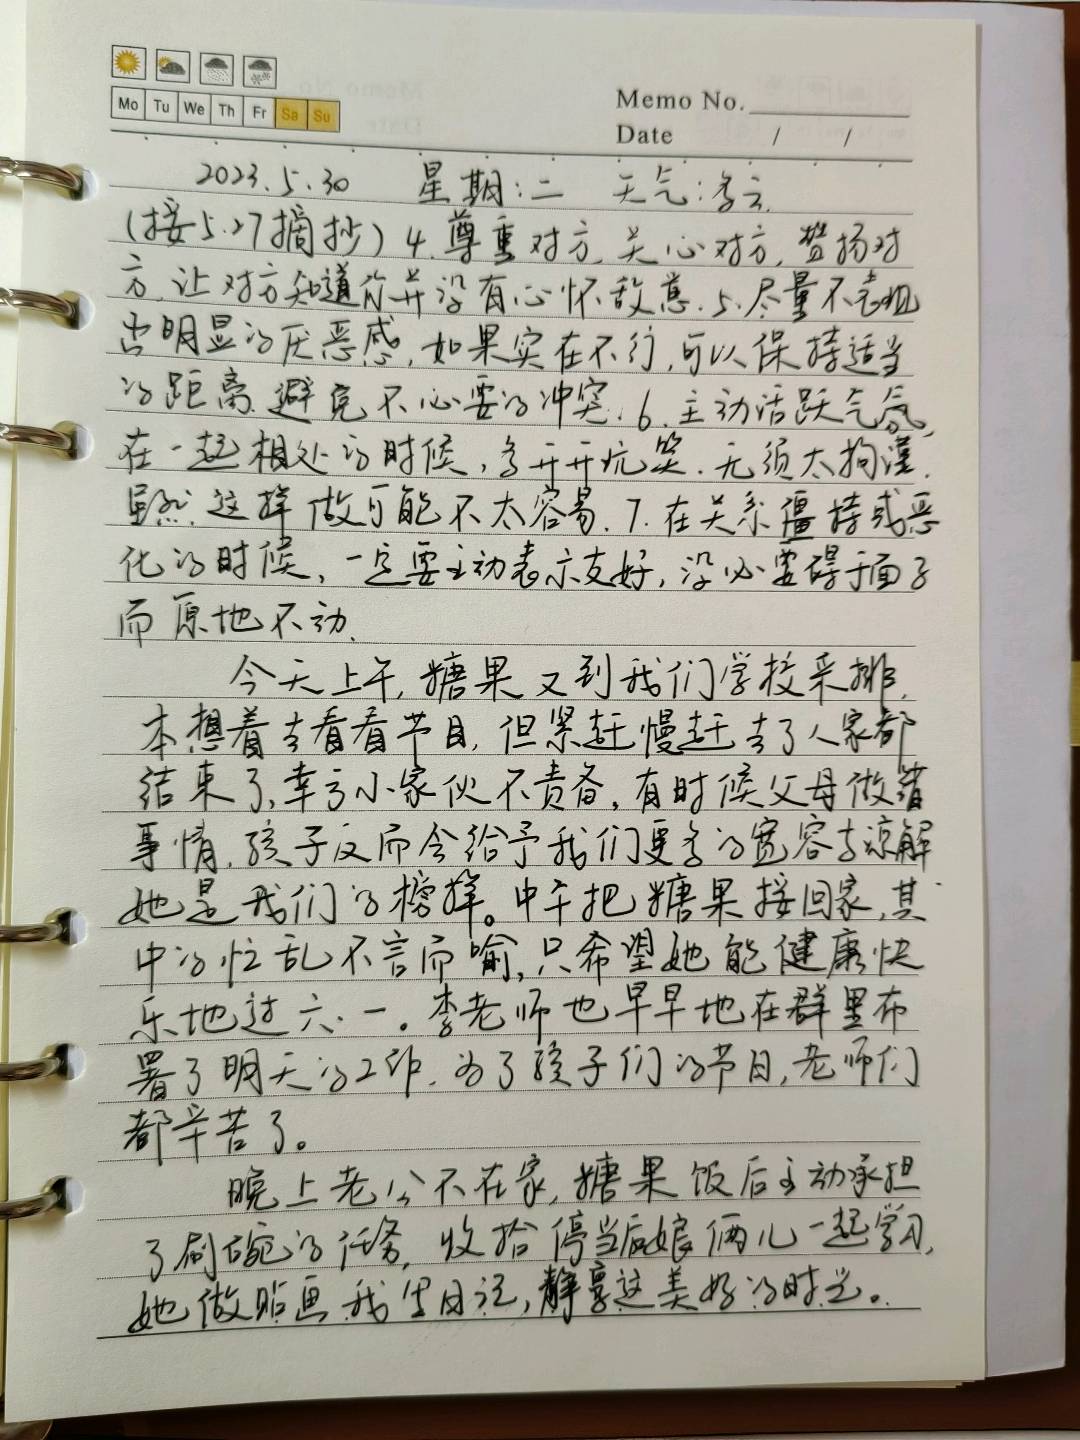 Mo Tu We Th Fr Sa Su
Memo No.
Date / /
2023.5.30 星期:二 天气:多云.
(接5.27摘抄) 4.尊重对方,关心对方,赞扬对
方,让对方知道你并没有心怀敌意.5.尽量不表现
出明显的厌恶感,如果实在不行,可以保持适当
的距离,避免不必要的冲突.6.主动活跃气氛,
在一起相处的时候,多开开玩笑.无须太拘谨.
虽然这样做可能不太容易.7.在关系僵持或恶
化的时候,一定要主动表示友好,没必要碍于面子
而原地不动.
今天上午,糖果又到我们学校采排,
本想着去看看节目,但紧赶慢赶去了人家都
结束了,幸亏小家伙不责备,有时候父母做错
事情,孩子反而会给予我们更多的宽容与谅解
她是我们的榜样。中午把糖果接回家,其
中的忙乱不言而喻,只希望她能健康快
乐地过六.一。李老师也早早地在群里布
署了明天的工作.为了孩子们的节日,老师们
都辛苦了。
晚上老公不在家,糖果饭后主动承担
了刷碗的任务,收拾停当后娘俩儿一起学习,
她做贴画我写日记,静享这美好的时光。